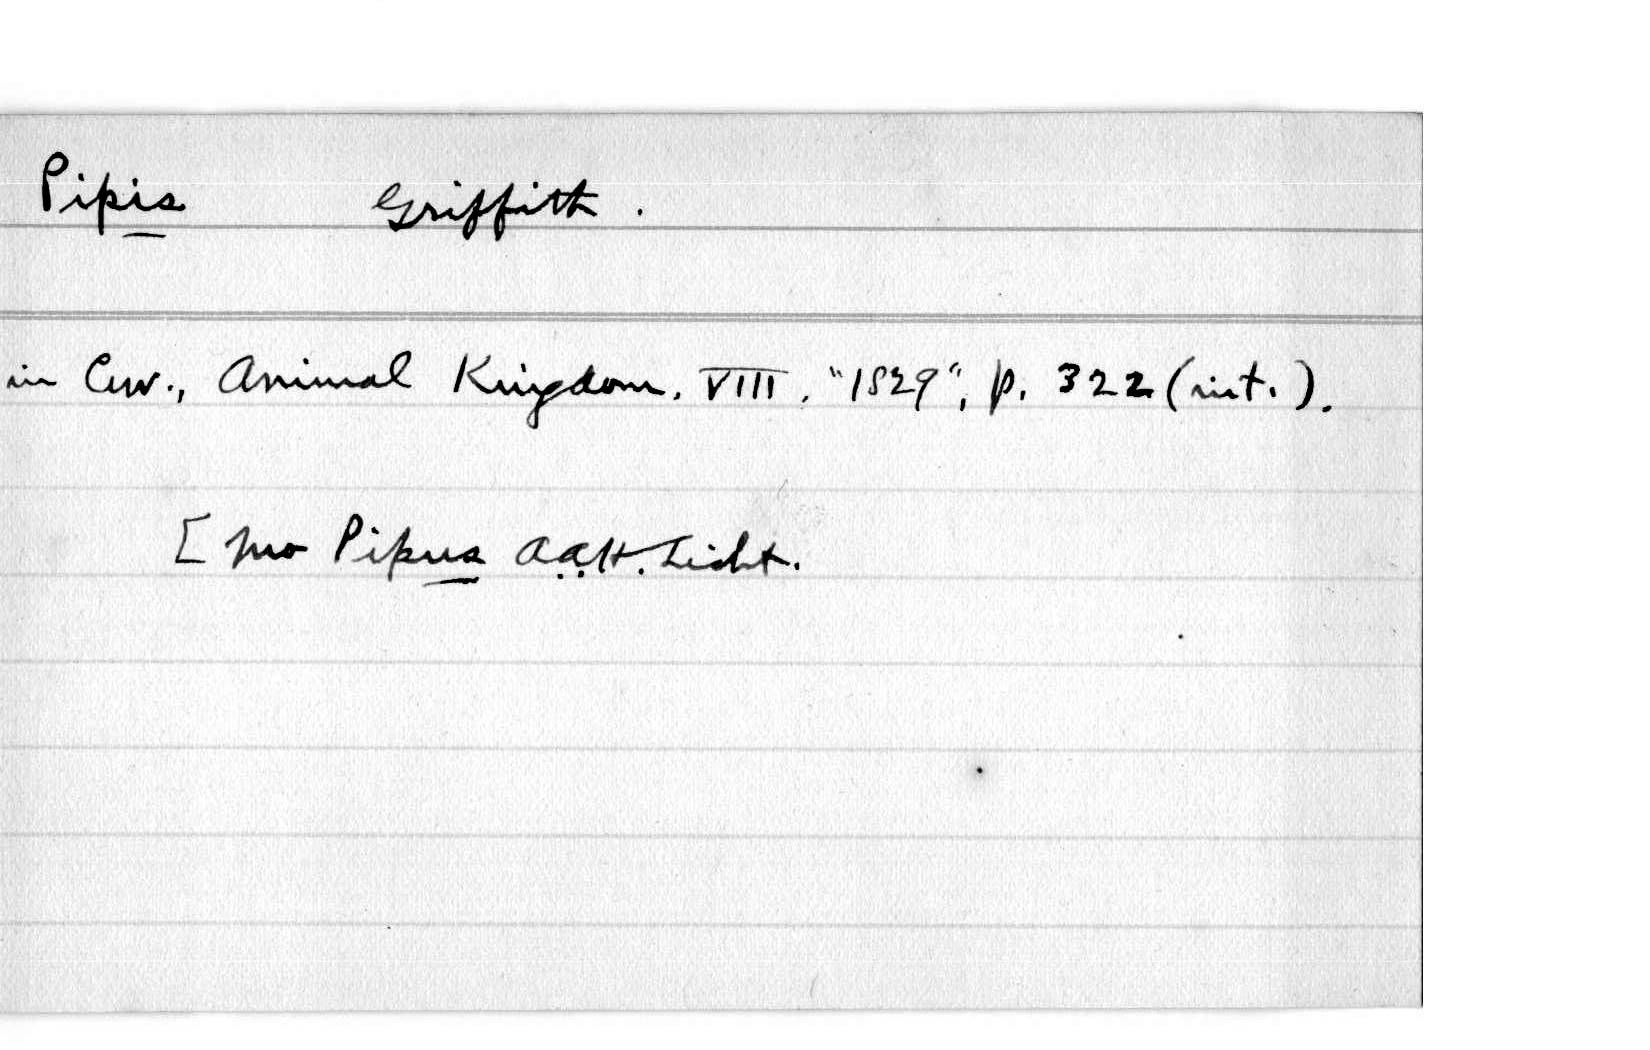 Pipis Griffith.
in Cuv., Animal Kingdom, VIII, "1829", p. 322 (int.).
[ pro Pipus Licht.